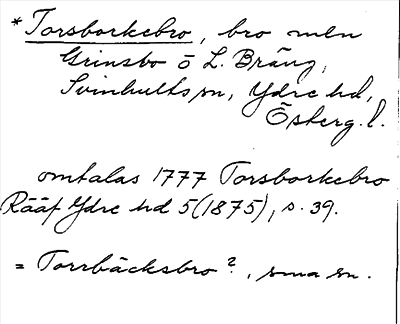 * Torsborkebro, bro mln
Grinsbo o L. Bräng,
Svinhults sn, Ydre hd,
Österg. l.
omtalas 1777 Torsborkebro
Rääf Ydre hd 5 (1875), s. 39.
= Torrbäcksbro?, sma sn.